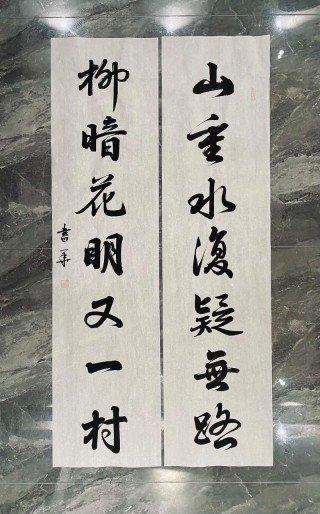 山重水復疑無路
柳暗花明又一村
書華